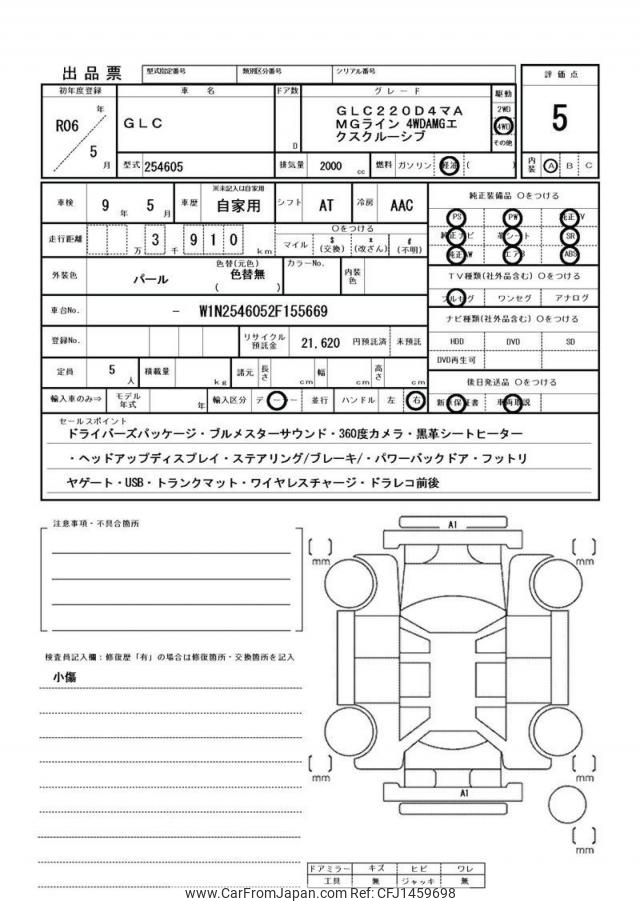 出品票
型式指定番号
類別区分番号
シリアル番号
評価点
初年度登録
車名
ドア数
グレード
駆動
R06
年
5
月
GLC
D
GLC220D4マA
MGライン 4WDAMGエ
クスクルーシブ
2WD
4WD
その他
5
型式
254605
排気量
2000
cc
燃料
ガソリン
軽油
(
)
内装
A
B
C
車検
9
年
5
月
車歴
※未記入は自家用
自家用
シフト
AT
冷房
AAC
純正装備品 Oをつける
PS
PW
純正TV
純正ナビ
革シート
SR
純正AW
エアB
ABS
走行距離
万
3
千
910
km
Oをつける
マイル
$
(交換)
*
(改ざん)
#
(不明)
外装色
パール
色替(元色)
色替無
(
)
カラーNo.
内装色
TV種類(社外品含む) Oをつける
フルセグ
ワンセグ
アナログ
車台No.
- W1N2546052F155669
ナビ種類(社外品含む) Oをつける
HDD
DVD
SD
DVD再生可
登録No.
リサイクル
預託金
21,620
円預託済
未預託
定員
5
人
積載量
kg
諸元
長さ
cm
幅
cm
高さ
cm
後日発送品 Oをつける
新車保証書
車両取説
輸入車のみ⇒
モデル
年式
年
輸入区分
ディーラー
並行
ハンドル
左
右
セールスポイント
ドライバーズパッケージ・ブルメスターサウンド・360度カメラ・黒革シートヒーター
・ヘッドアップディスプレイ・ステアリング/ブレーキ/・パワーバックドア・フットリ
ヤゲート・USB・トランクマット・ワイヤレスチャージ・ドラレコ前後
注意事項・不具合箇所
A1
[ ]
mm
[ ]
mm
検査員記入欄:修復歴「有」の場合は修復箇所・交換箇所を記入
小傷
[ ]
mm
[ ]
mm
A1
[ ]
mm
ドアミラー
キズ
ヒビ
ワレ
工具
無
ジャッキ
無
www.CarFromJapan.com Ref: CFJ1459698